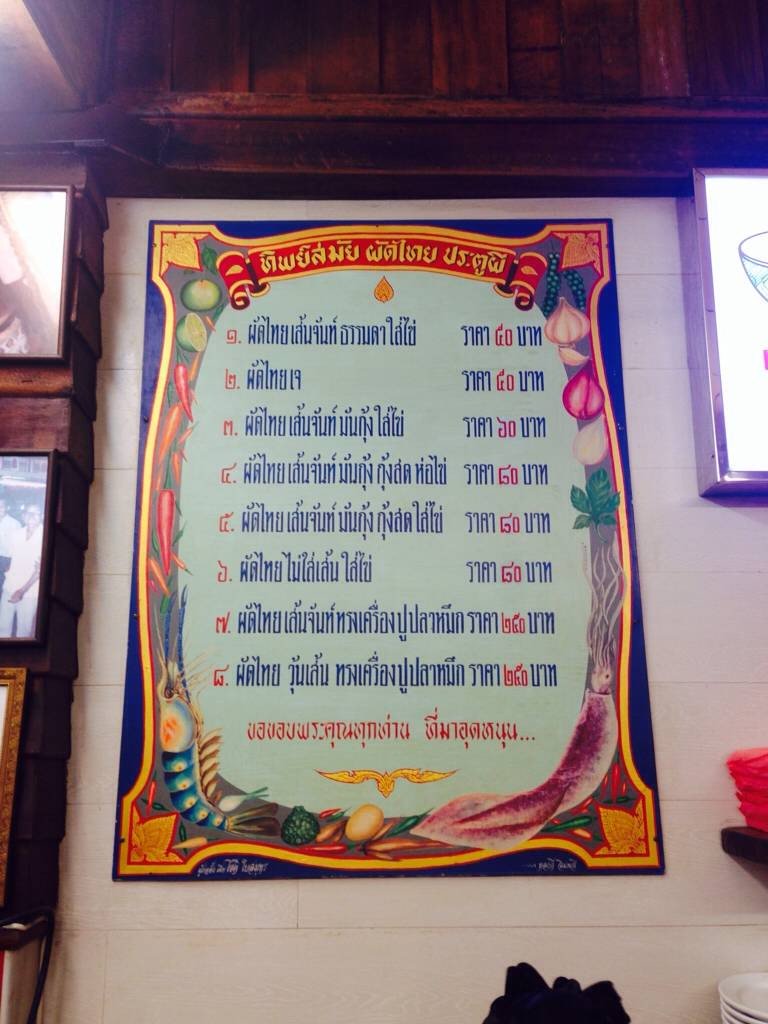 ทิพย์สมัย ผัดไทย ประตูผี
๑. ผัดไทยเส้นจันท์ ธรรมดาใส่ไข่ ราคา ๕๐ บาท
๒. ผัดไทยเจ ราคา ๕๐ บาท
๓. ผัดไทยเส้นจันท์ มันกุ้ง ใส่ไข่ ราคา ๖๐ บาท
๔. ผัดไทยเส้นจันท์ มันกุ้ง กุ้งสด ห่อไข่ ราคา ๘๐ บาท
๕. ผัดไทยเส้นจันท์ มันกุ้ง กุ้งสด ใส่ไข่ ราคา ๘๐ บาท
๖. ผัดไทย ไม่ใส่เส้น ใส่ไข่ ราคา ๘๐ บาท
๗. ผัดไทยเส้นจันท์ ทรงเครื่อง ปูปลาหมึก ราคา ๒๕๐ บาท
๘. ผัดไทย วุ้นเส้น ทรงเครื่อง ปูปลาหมึก ราคา ๒๕๐ บาท
ขอขอบพระคุณทุกท่าน ที่มาอุดหนุน...